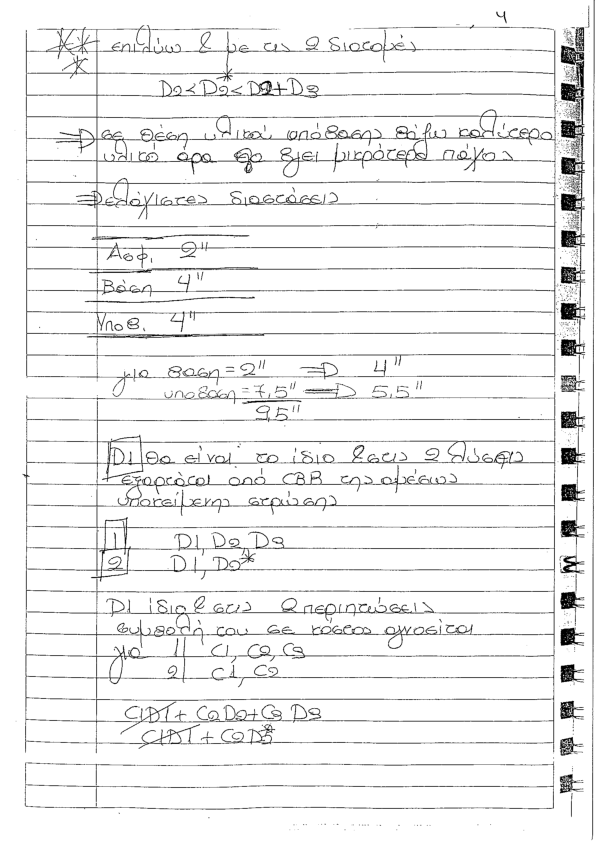 4
** επιλύω & με τις 2 διατομές
*
D2 < D2* < D2 + D3
⇒ σε θέση υλικού υπόβασης βάζω καλύτερο
υλικό άρα θα έχει μικρότερο πάχος
⇒ ελάχιστες διαστάσεις
Ασφ. 2"
Βάση 4"
Υποβ. 4"
για βαση = 2" ⇒ 4"
υποβαση = 7,5" ⇒ 5,5"
9,5"
D1 θα είναι το ίδιο & στις 2 λύσεις
εξαρτάται από CBR της αμέσως
υποκείμενης στρώσης
1 D1, D2, D3
2 D1, D2*
D1 ίδιο & στις 2 περιπτώσεις
συμβολή του σε κόστος αγνοείται
για 1 | C1, C2, C3
2 | C1, C2
C1D1 + C2D2 + C3 D3
C1D1 + C2 D2*